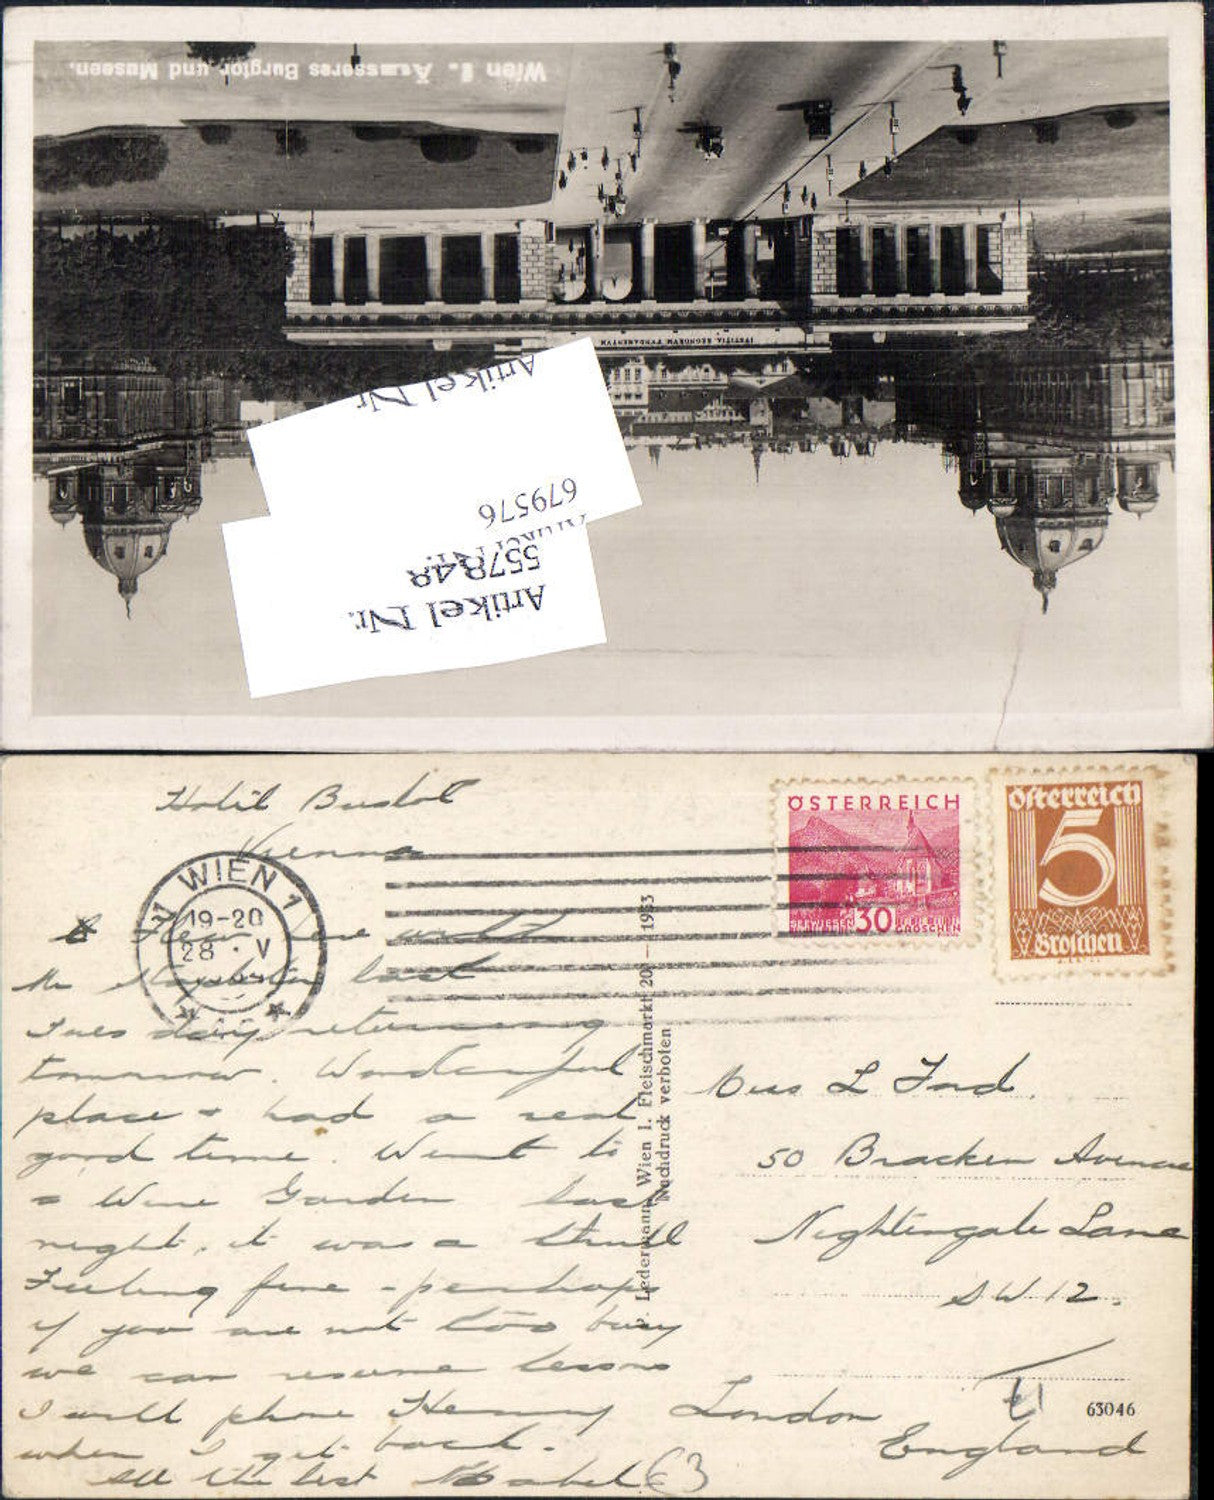 Wien I. Äusseres Burgtor und Museen.
IVSTITIA REGNORVM FVNDAMENTVM
Artikel Nr.
679576
557848
Artikel Nr.
Hotel Bristol
Vienna
ÖSTERREICH
30
GROSCHEN
Österreich
5
Groschen
WIEN 1
19-20
28 · V
Have been with
Mr
last
Tues day returning
tomorrow. Wonderful
place + had a real
good time. Went to
a Wine Garden last
night, it was a thrill
Feeling fine - perhaps
if you are not too busy
we can resume lessons
I will phone
when I get back.
All the best Mabel
P. Ledermann, Wien I. Fleischmarkt 20 — 1933
Nachdruck verboten
Miss L Ford.
50 Bracken Avenue
Nightingale Lane
SW 12.
London
England
63046
63